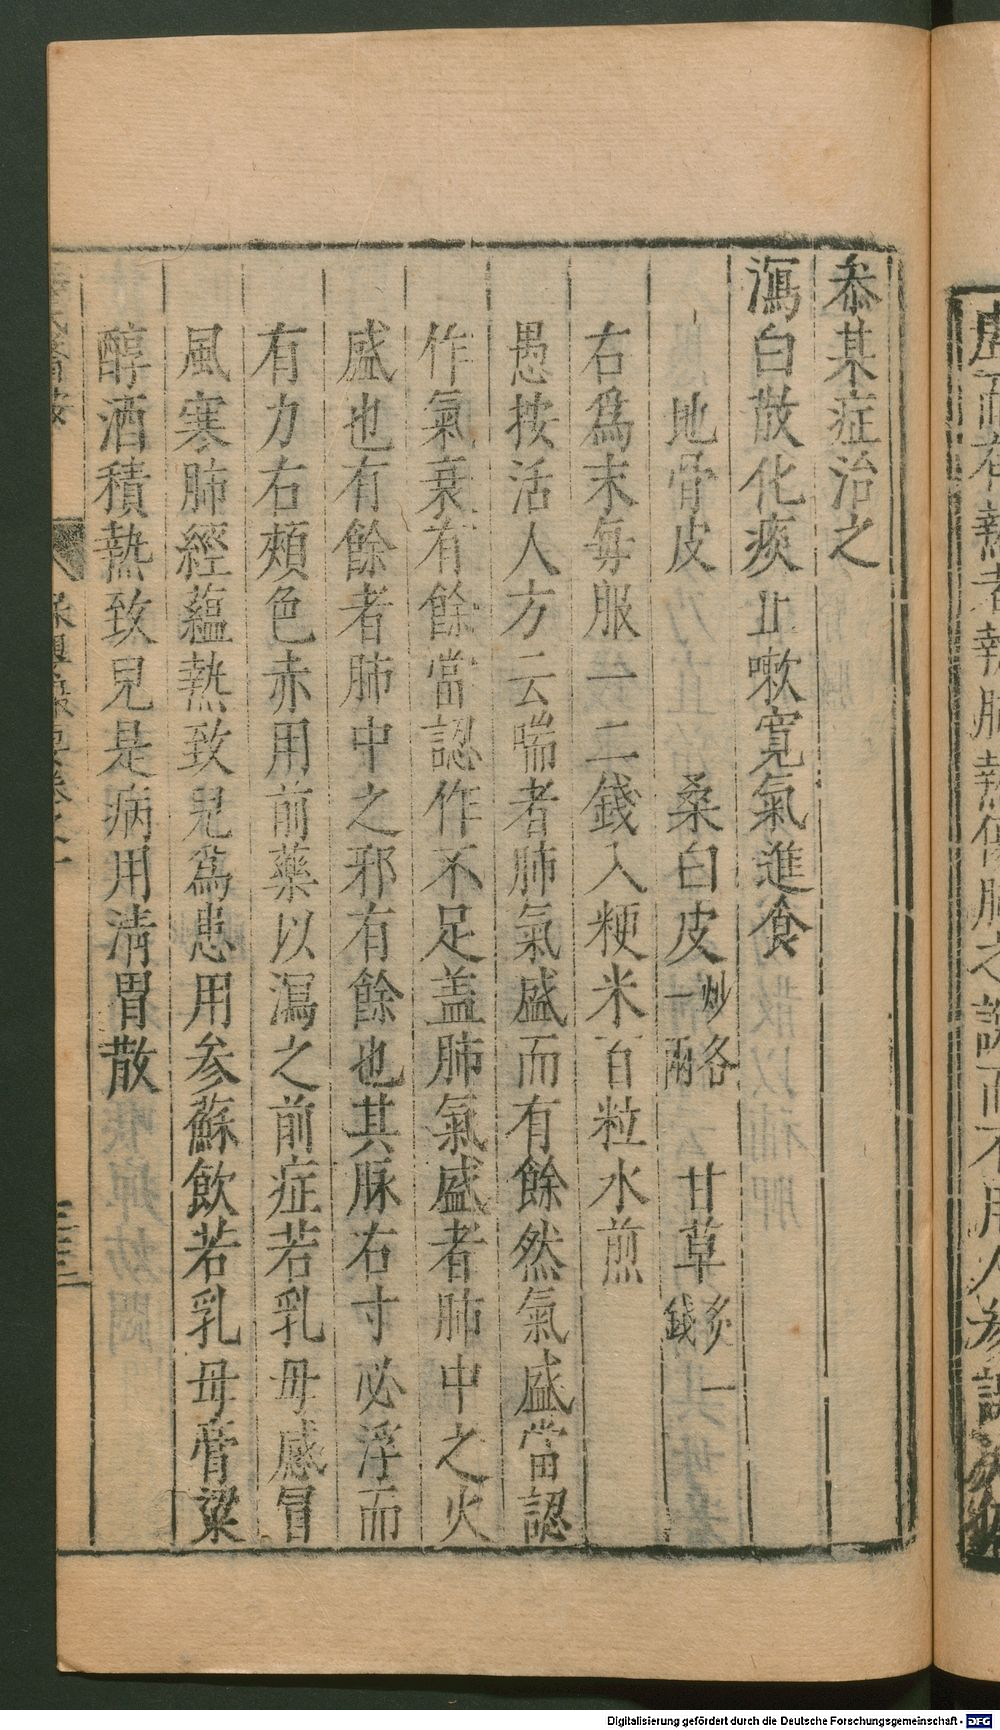 叅某症治之
瀉白散化痰止嗽寛氣進食
地骨皮　桑白皮炒各一兩　甘草炙一錢
右爲末每服一二錢入粳米百粒水煎
愚按活人方云喘者肺氣盛而有餘然氣盛當認
作氣衰有餘當認作不足盖肺氣盛者肺中之火
盛也有餘者肺中之邪有餘也其脉右寸必浮而
有力右頰色赤用前藥以瀉之前症若乳母感冒
風寒肺經蘊熱致兒爲患用参蘇飲若乳母膏粱
醇酒積熱致兒是病用清胃散
Digitalisierung gefördert durch die Deutsche Forschungsgemeinschaft - DFG